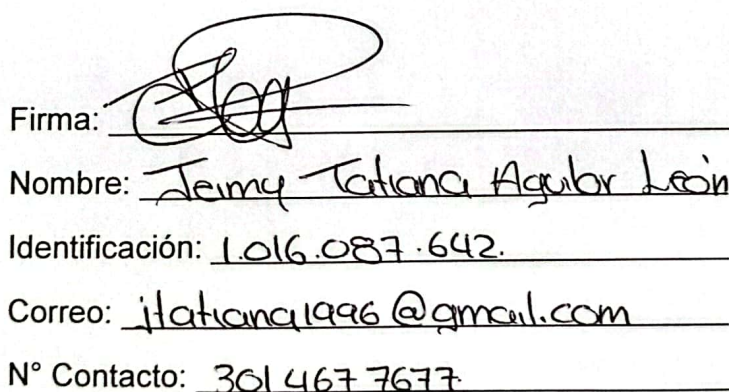 Firma:
Nombre: Jeimy Tatiana Aguilar León
Identificación: 1.016.087.642.
Correo: jtatiana1996@gmail.com
N° Contacto: 301 467 7677